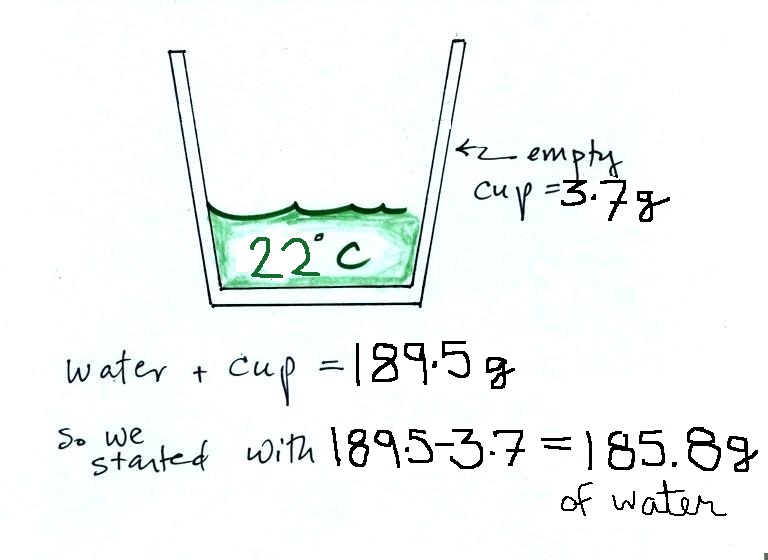 ← empty
cup = 3.7g
22°C
water + cup = 189.5 g
So we
started with 189.5-3.7 = 185.8g
of water